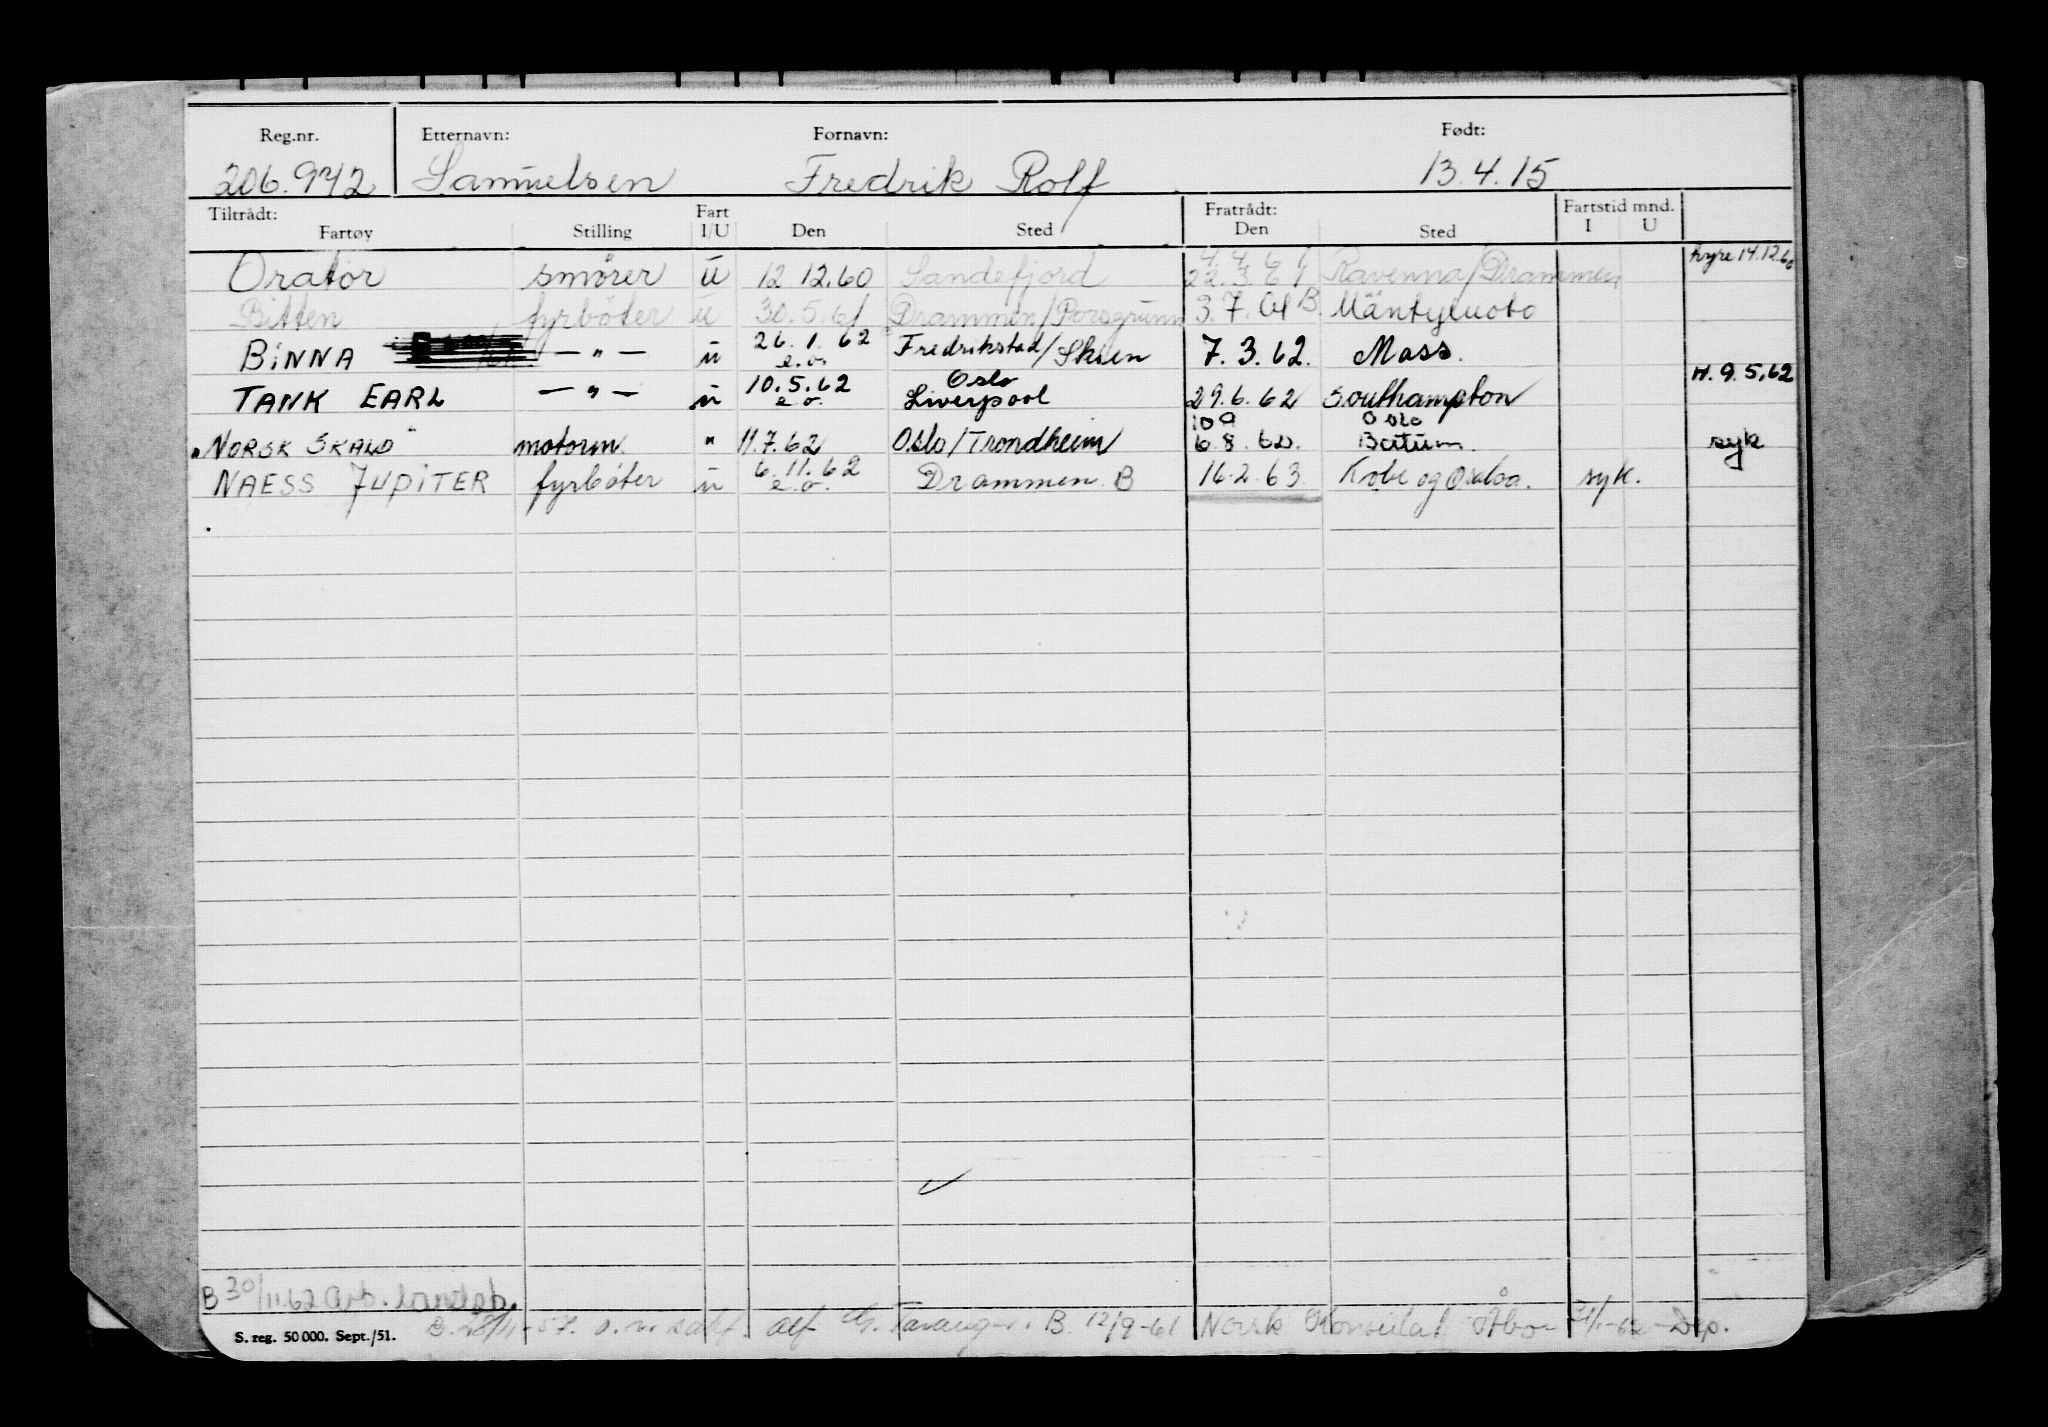 Reg.nr. Etternavn: Fornavn: Født:
206.942 Samuelsen Fredrik Rolf 13.4.15
Tiltrådt: Fart Fratrådt: Fartstid mnd.
Fartøy Stilling I/U Den Sted Den Sted I U
4.4.61 hyre 14.12.60
Orator smører u 12 12.60 Sandefjord 22.3.61 Ravenna/Drammen
Bitten fyrbøter u 30.5.61 Drammen/Porsgrunn 3.7.61 B. Mäntyluoto
BINNA — " — u 26.1.62 e.o. Fredrikstad/Skien 7.3.62. Moss.
10.5.62 Oslo H. 9.5.62
TANK EARL — " — u e.o. Liverpool 29.6.62 Southampton
109 Oslo
"NORSK SKALD" motorm. " 11.7.62 Oslo/Trondheim 6.8.62. Batum. syk
NAESS JUPITER fyrbøter u 6.11.62 e.o. Drammen. B 16.2.63. Kobe og syk.
B 30/11.62 Arb.
S. reg. 50 000. Sept./51. B. 28/11-57. alf G. Taranger. B 12/9-61 Norsk Konsulat Åbo - -62 - Dep.